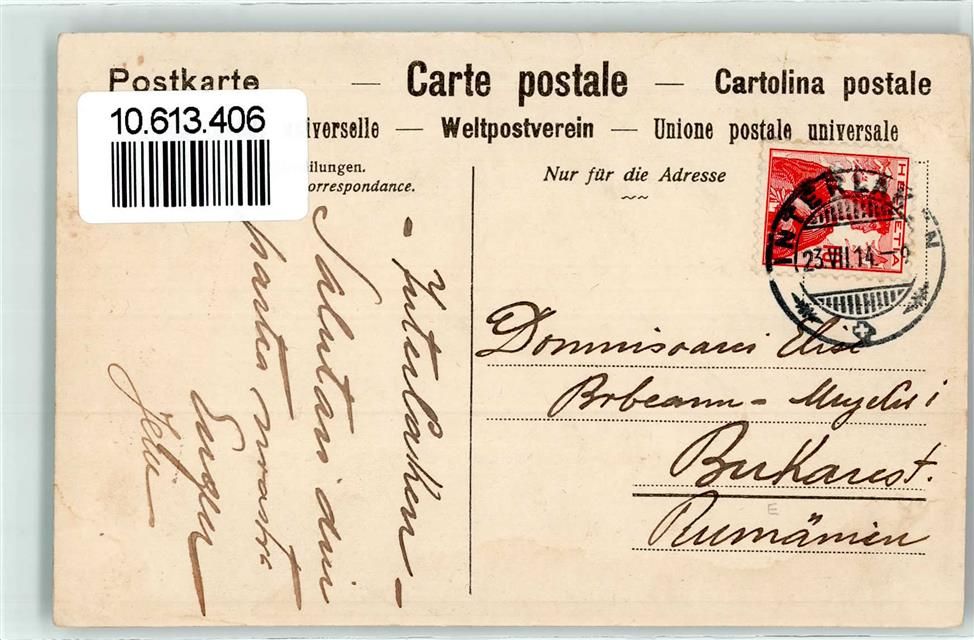 Postkarte — Carte postale — Cartolina postale
10.613.406
iverselle — Weltpostverein — Unione postale universale
ilungen.
orrespondance.
Nur für die Adresse
HELVETIA
INTERLAKEN
23.VII.14.
- Interlaken -
Salutari din
partea noastră
Eugen
Domnisoarei Elise
Bukarest.
Rumänien